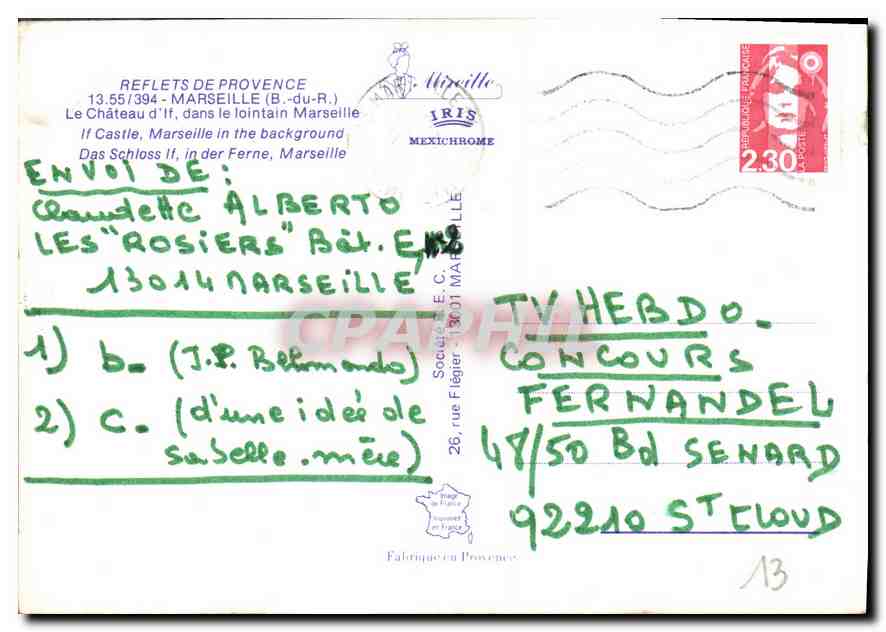 REFLETS DE PROVENCE
13.55/394 - MARSEILLE (B.-du-R.)
Le Château d'If, dans le lointain Marseille
If Castle, Marseille in the background
Das Schloss If, in der Ferne, Marseille
Mireille
IRIS
MEXICHROME
RÉPUBLIQUE FRANÇAISE
2.30
LA POSTE
ENVOI DE :
Claudette ALBERTO
LES "ROSIERS" Bât. E,
13014 MARSEILLE
1) b- (J.P. Belmondo)
2) c- (d'une idée de
sa belle-mère)
Société E.C.
26, rue Flégier - 13001 MARSEILLE
CPAPHIL
TV HEBDO-
CONCOURS
FERNANDEL
48/50 Bd SENARD
92210 ST CLOUD
Image
de France
Imprimée
en France
Fabriqué en Provence
13